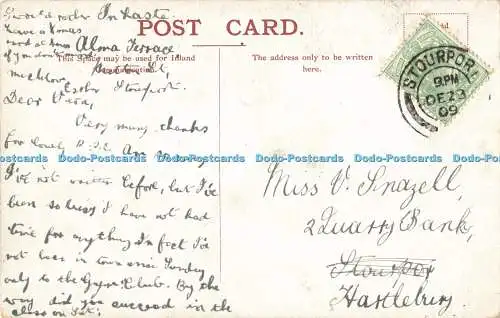 In haste
POST CARD.
Alma Terrace
This Space may be used for Inland
The address only to be written
here.
Stourport.
Dear Vera,
Very many thanks
for lovely P.P.C. Am so sorry
I've not written before, but I've
been so busy I have not had
time for anything In fact I've
not been in town since Sunday
only to the Gym Club. By the
way did you succeed in the
class on Sat:
STOURPORT
9 PM
DE 23
09
Miss V. Snazell,
2 Quarry Bank,
Stourport
Hartlebury.
Dodo-Postcards Dodo-Postcards Dodo-Postcards Dodo-Postcards Dodo-Postcards